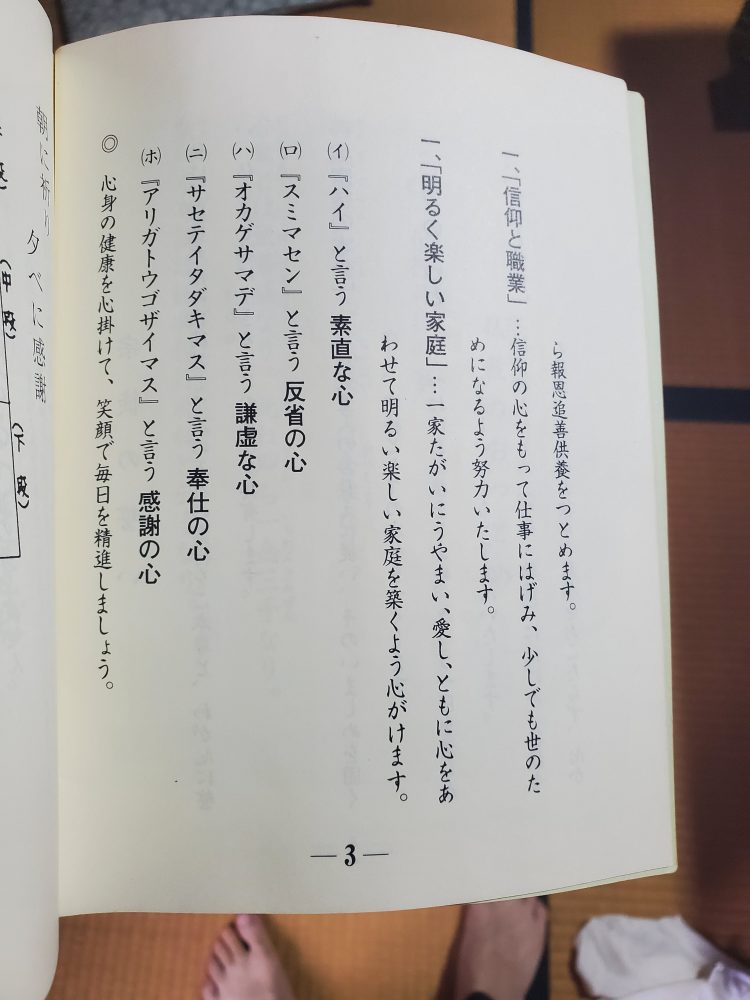 ら報恩追善供養をつとめます。
一、「信仰と職業」…信仰の心をもって仕事にはげみ、少しでも世のた
めになるよう努力いたします。
一、「明るく楽しい家庭」…一家たがいにうやまい、愛し、ともに心をあ
わせて明るい楽しい家庭を築くよう心がけます。
㈑『ハイ』と言う 素直な心
㈺『スミマセン』と言う 反省の心
㈩『オカゲサマデ』と言う 謙虚な心
(ニ)『サセテイタダキマス』と言う 奉仕の心
(ホ)『アリガトウゴザイマス』と言う 感謝の心
◎ 心身の健康を心掛けて、笑顔で毎日を精進しましょう。
― 3 ―
朝に祈り 夕べに感謝
(中段)
(下段)